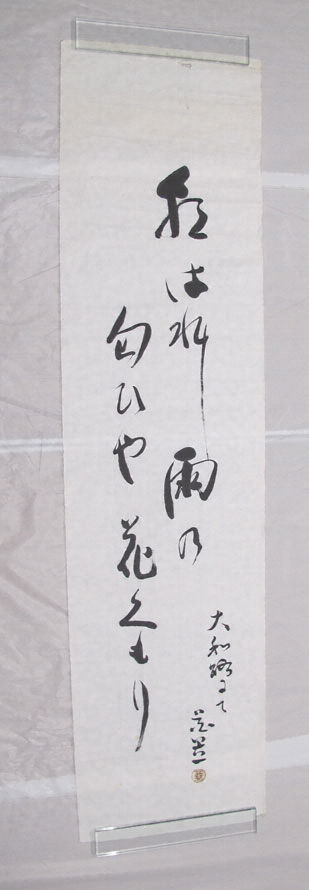 はれし雨の
匂ひや花くもり
大和路にて